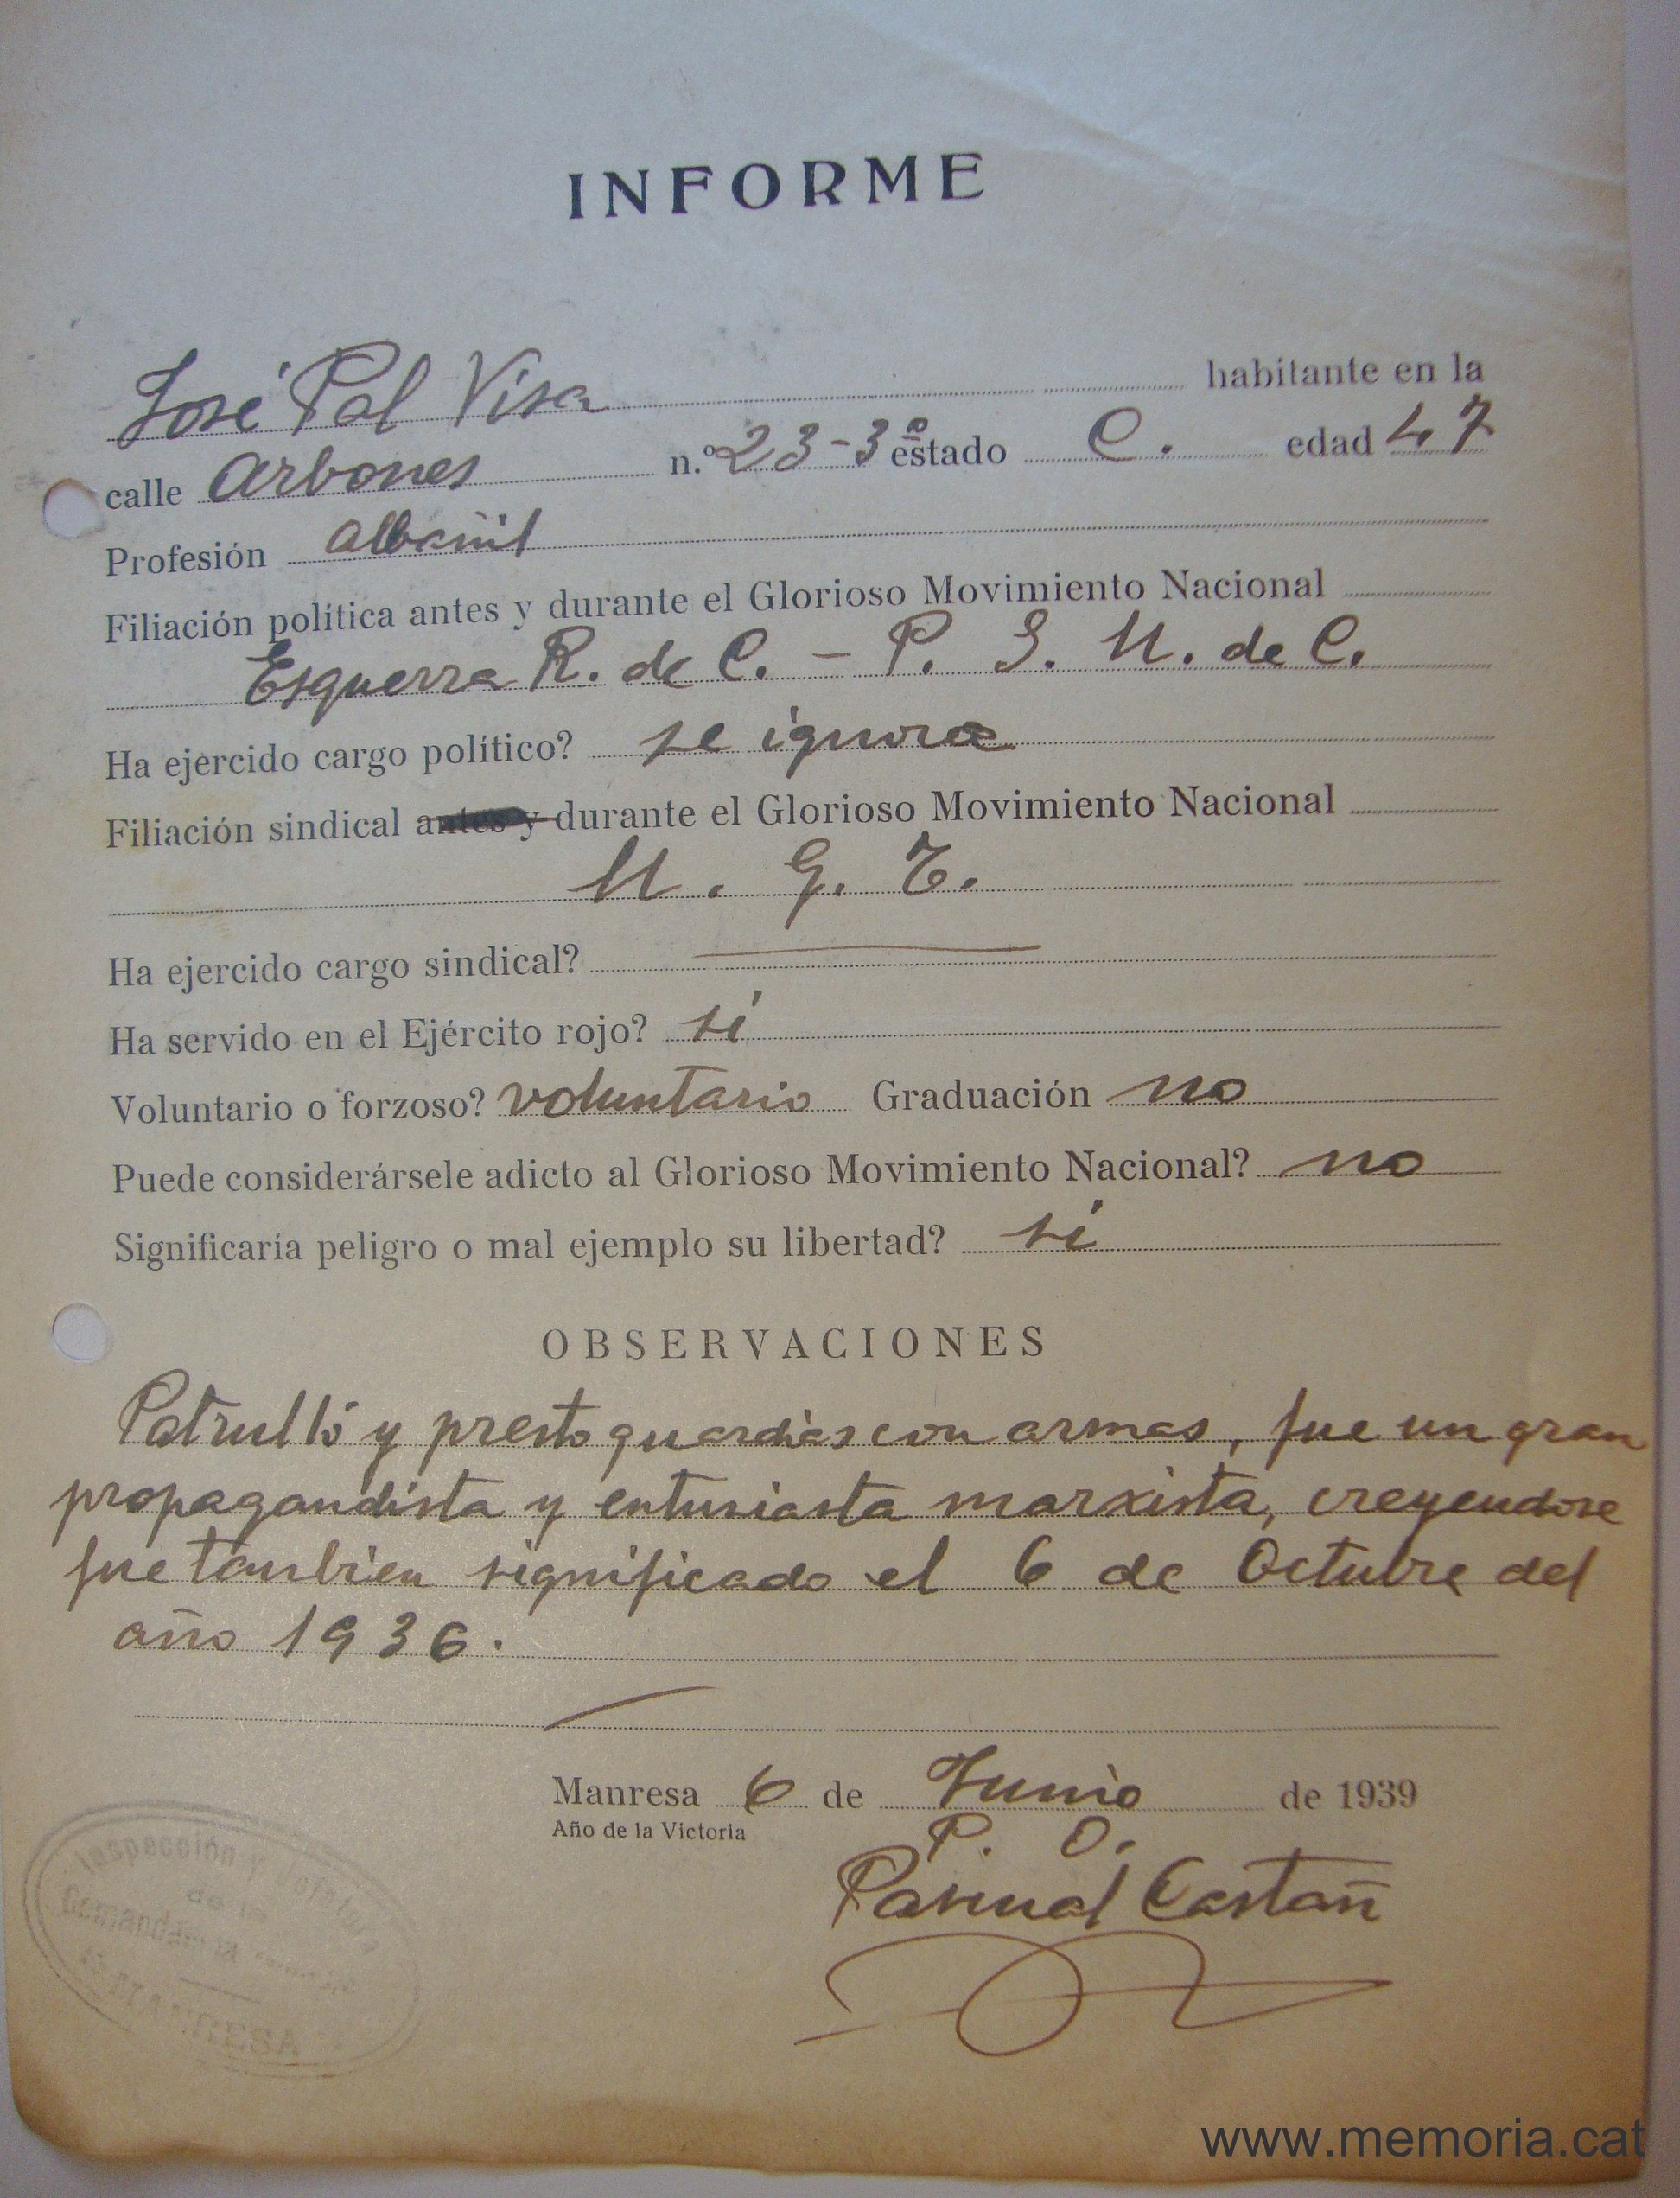 INFORME
José Pal Visa habitante en la
calle Arbones n.º 23-3º estado C. edad 47
Profesión albañil
Filiación política antes y durante el Glorioso Movimiento Nacional
Esquerra R. de C. - P. S. U. de C.
Ha ejercido cargo político? se ignora
Filiación sindical antes y durante el Glorioso Movimiento Nacional
U. G. T.
Ha ejercido cargo sindical?
Ha servido en el Ejército rojo? sí
Voluntario o forzoso? voluntario Graduación no
Puede considerársele adicto al Glorioso Movimiento Nacional? no
Significaría peligro o mal ejemplo su libertad? sí
OBSERVACIONES
Patrulló y presto guardias con armas, fue un gran
propagandista y entusiasta marxista, creyendose
fue tambien significado el 6 de Octubre del
año 1936.
Manresa 6 de Junio de 1939
Año de la Victoria
P. O.
Pascual Castañ
Inspección y Jefatura
de la
MANRESA
www.memoria.cat